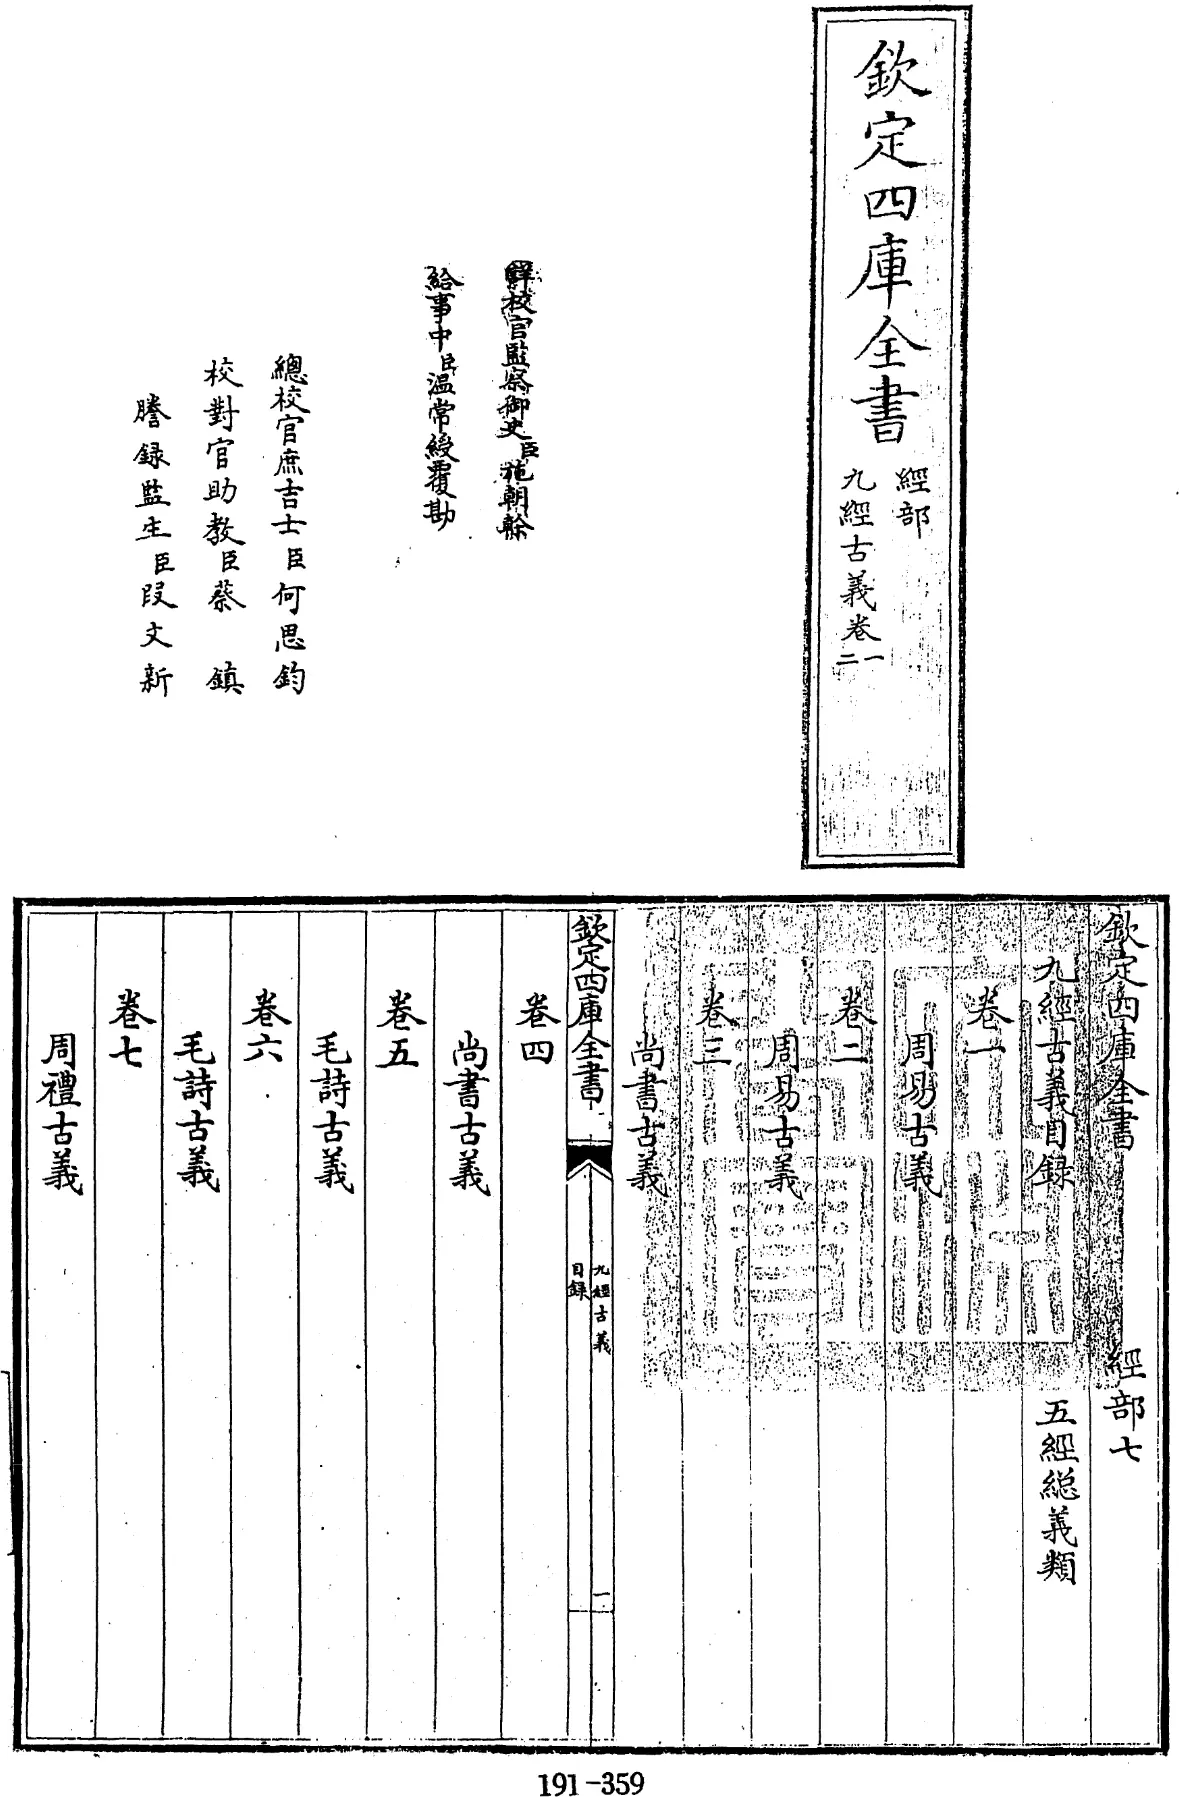 欽定四庫全書
經部
九經古義卷一
二
詳校官監察御史臣施朝榦
給事中臣温常綬覆勘
總校官庶吉士臣何思鈞
校對官助教臣蔡鎮
謄録監生臣段文新
欽定四庫全書 經部七
九經古義目録 五經総義類
卷一
周易古義
卷二
周易古義
卷三
尚書古義
欽定四庫全書
九經古義
目録
一
卷四
尚書古義
卷五
毛詩古義
卷六
毛詩古義
卷七
周禮古義
191-359